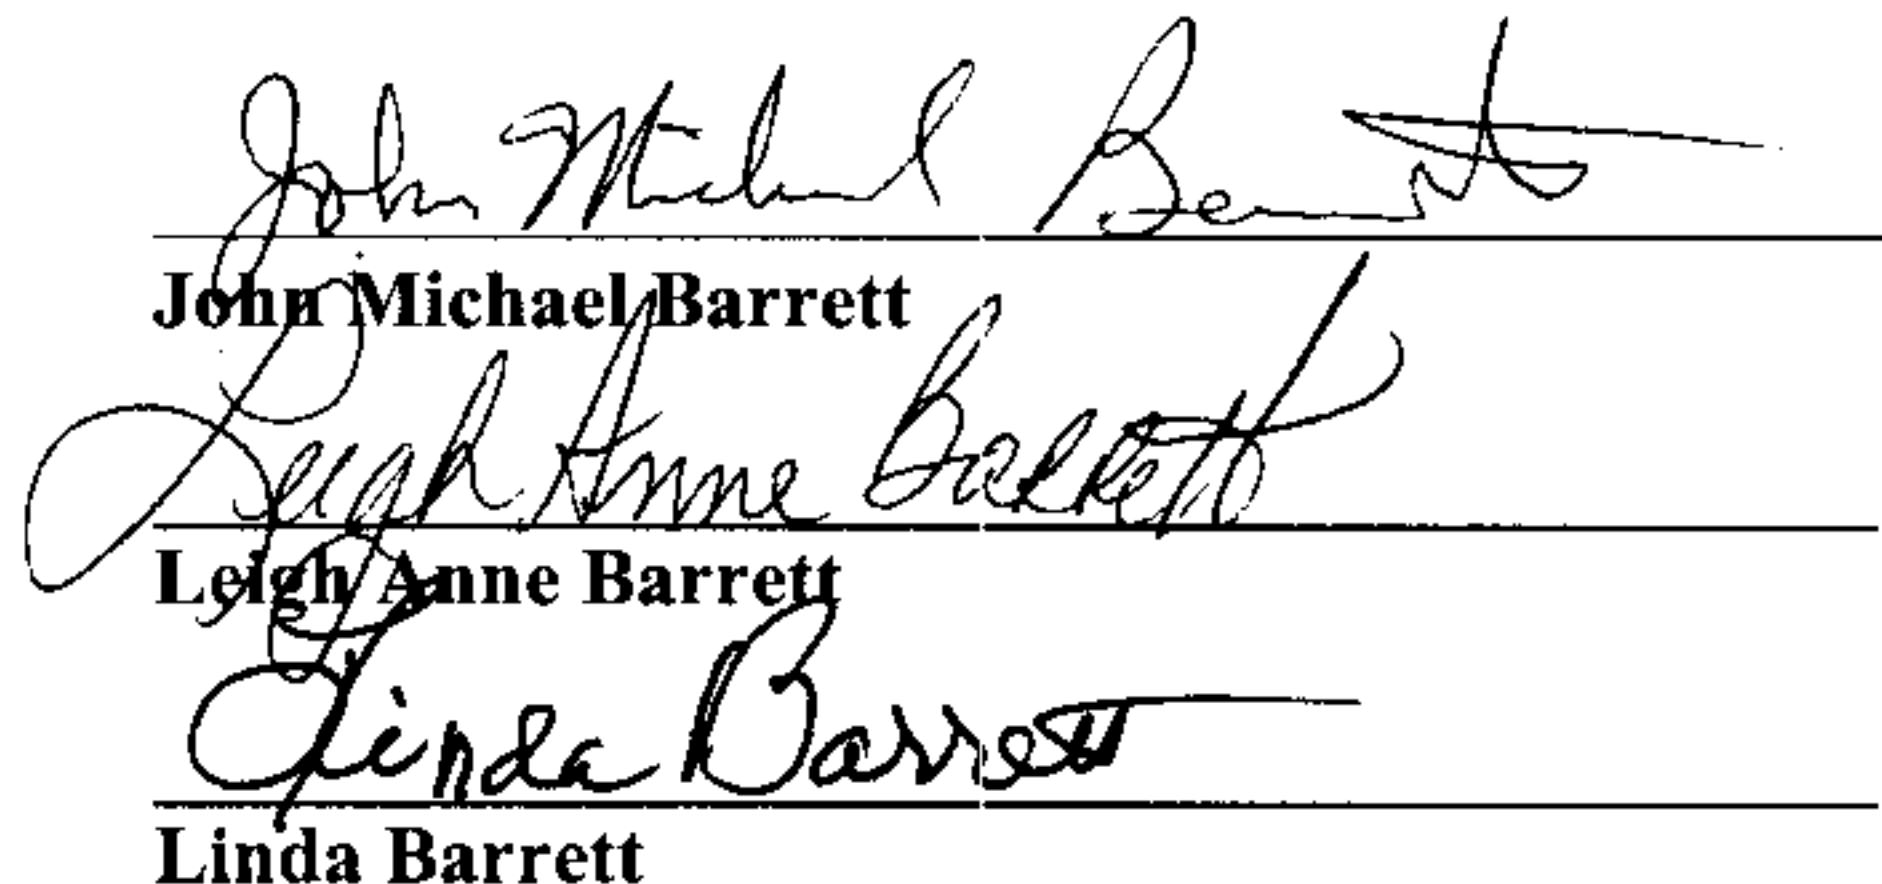 John Michael Barrett
John Michael Barrett
Leigh Anne Barrett
Leigh Anne Barrett
Linda Barrett
Linda Barrett